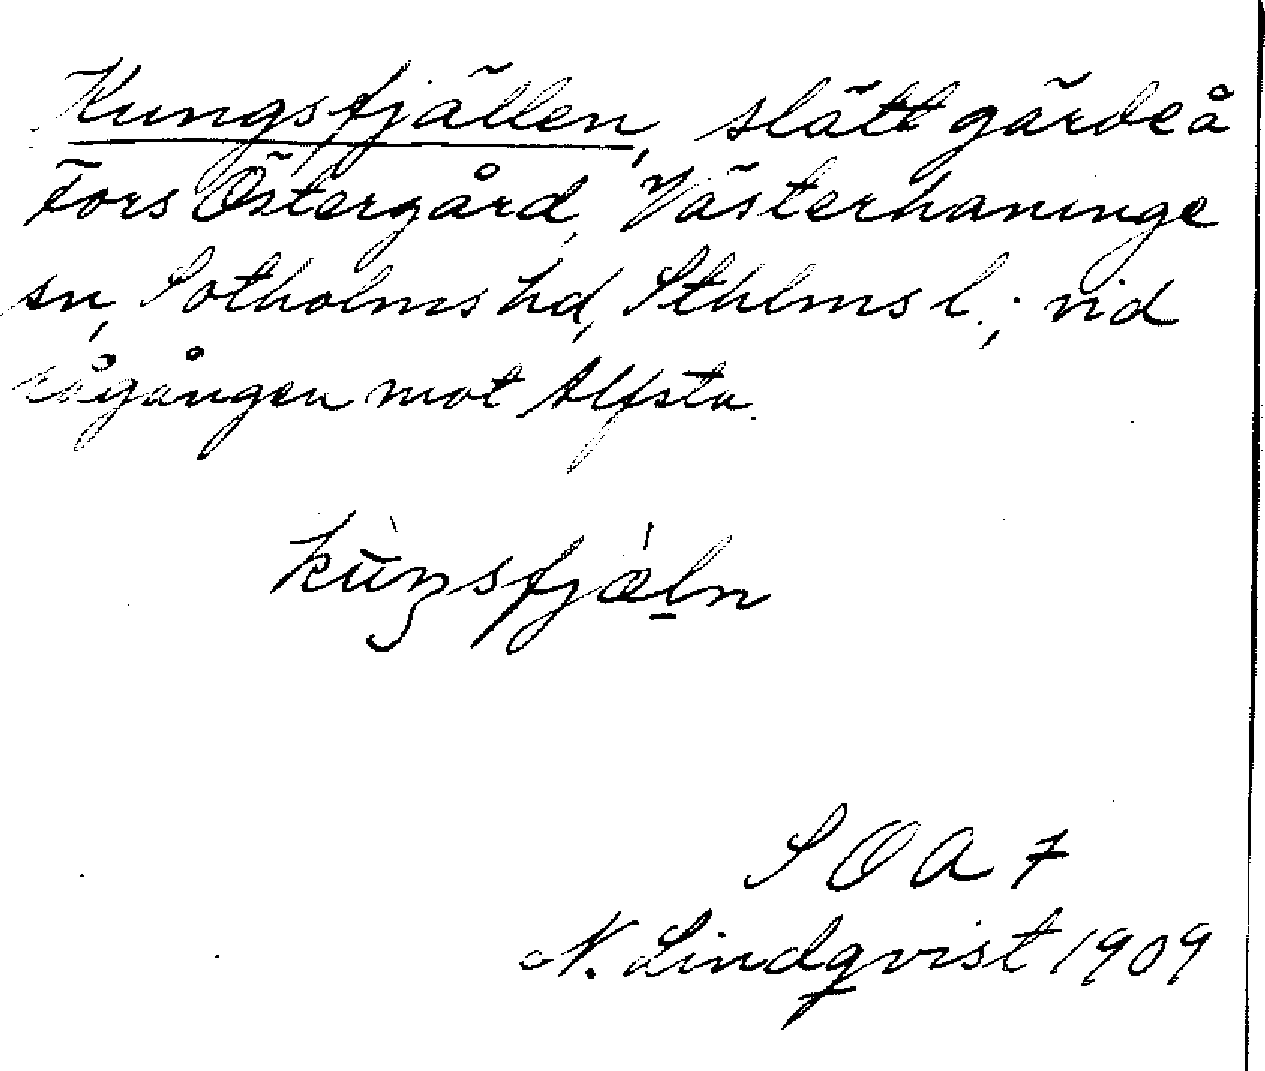 Kungsfjällen, slätt gärde å
Fors Östergård, Västerhaninge
sn, Sotholms hd, Sthlms l.; vid
rågången mot Alfsta.
kùŋsfjæ̍ḻn
S O A 7
N. Lindqvist 1909